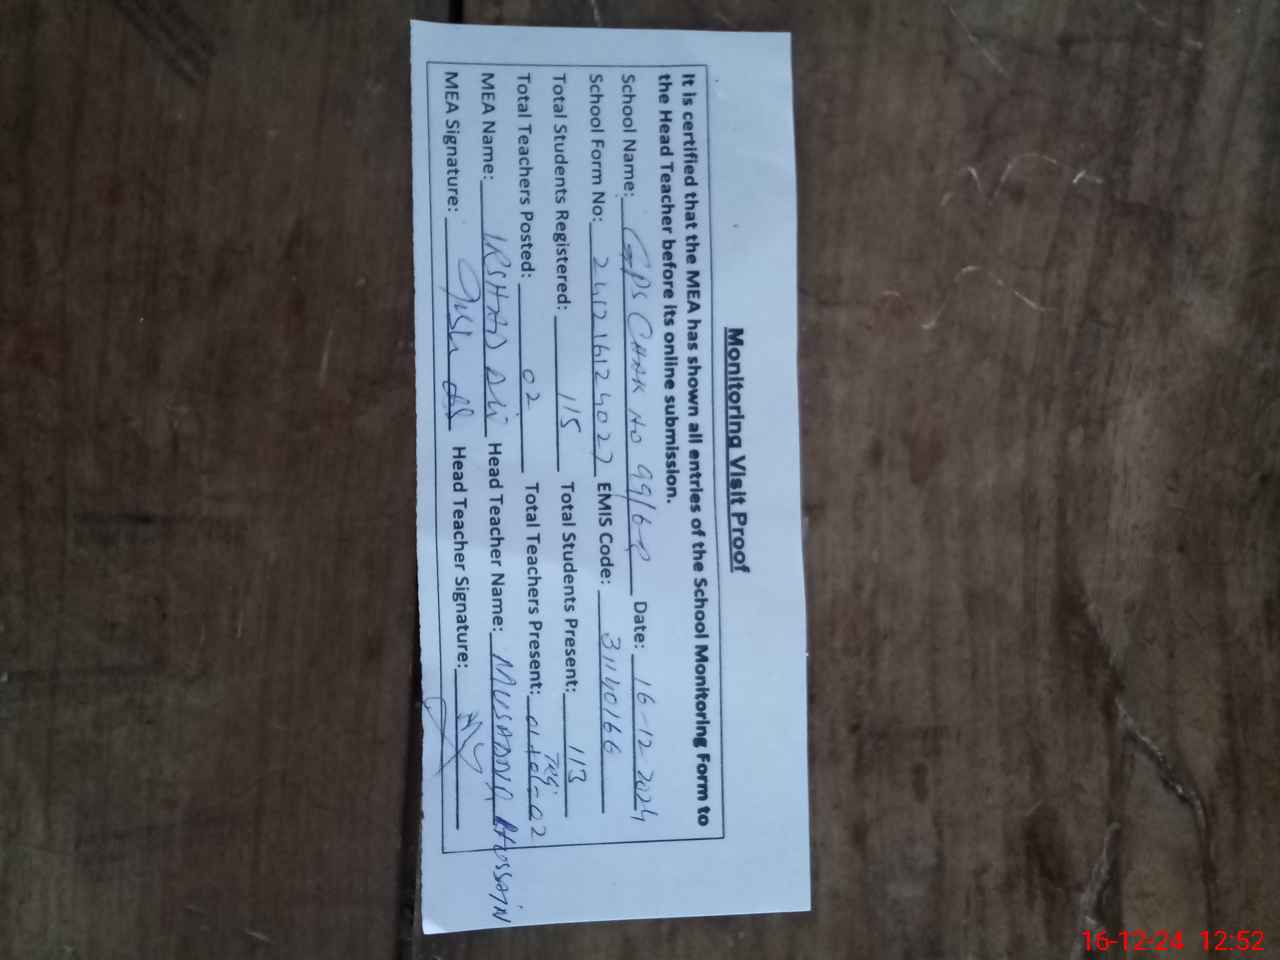 Monitoring Visit Proof
It is certified that the MEA has shown all entries of the School Monitoring Form to
the Head Teacher before its online submission.
School Name: GPS CHAK NO 99/6-R Date: 16-12-2024
School Form No: 241216124027 EMIS Code: 31140166
Total Students Registered: 115 Total Students Present: 113
Total Teachers Posted: 02 Total Teachers Present: 02
MEA Name: IRSHAD ALI Head Teacher Name: MUSADDIQ HUSSAIN
MEA Signature: Head Teacher Signature:
16-12-24 12:52